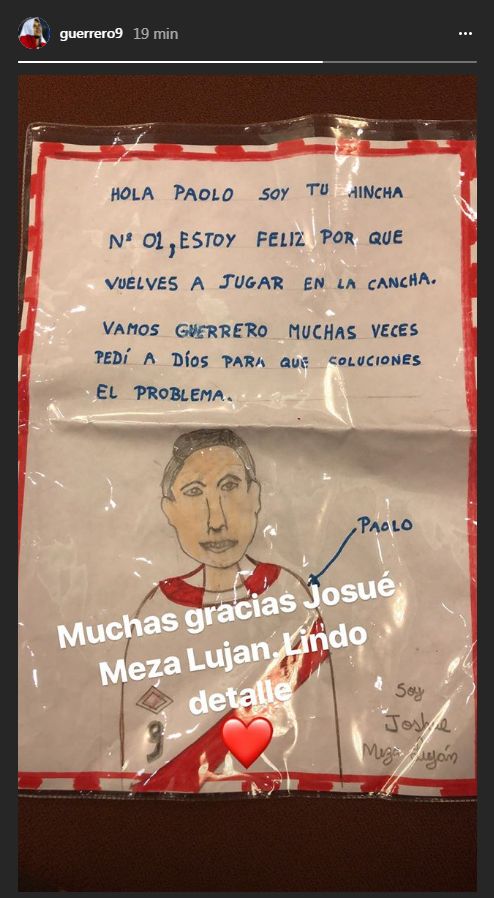 guerrero9 19 min
HOLA PAOLO SOY TU HINCHA
Nº 01, ESTOY FELIZ POR QUE
VUELVES A JUGAR EN LA CANCHA.
VAMOS GUERRERO MUCHAS VECES
PEDÍ A DÍOS PARA QUE SOLUCIONES
EL PROBLEMA.
PAOLO
Muchas gracias Josué
Meza Lujan. Lindo
detalle
9
Soy
Joshue
Meza Luján